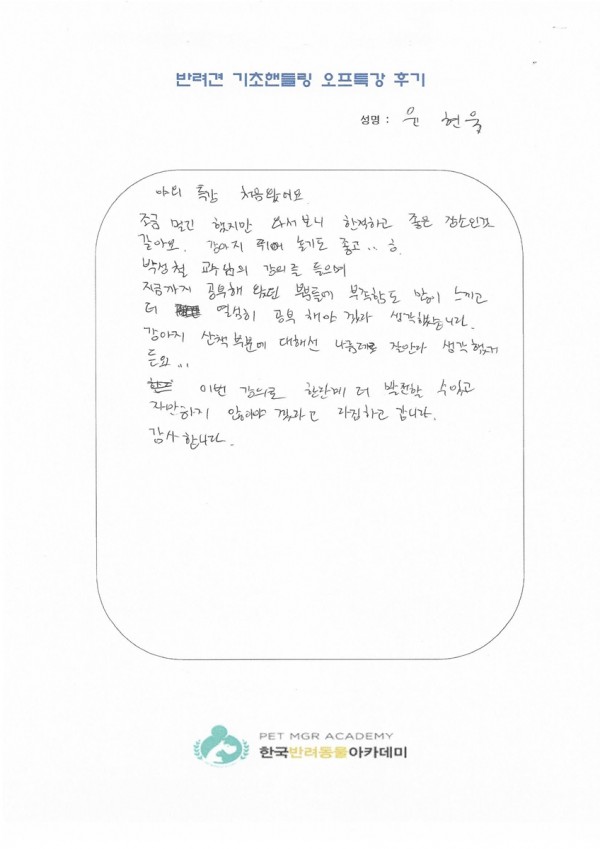 반려견 기초핸들링 오프특강 후기
성명 : 윤 현욱
야외 특강 처음왔어요
조금 먹긴 했지만 와서보니 한적하고 좋은 장소인것
같아요. 강아지 뛰어 놀기도 좋고..
박성철 교수님의 강의를 들으며
지금까지 공부해 왔던 부족함도 많이 느끼고
더 열심히 공부 해야 겠다 생각했습니다.
강아지 산책 부분에 대해선 나름대로 잘안다 생각했거
든요...
이번 강의로 한단계 더 발전할 수있고
자만하지 않아야 겠다고 다짐하고 갑니다.
감사합니다.
PET MGR ACADEMY
한국반려동물아카데미